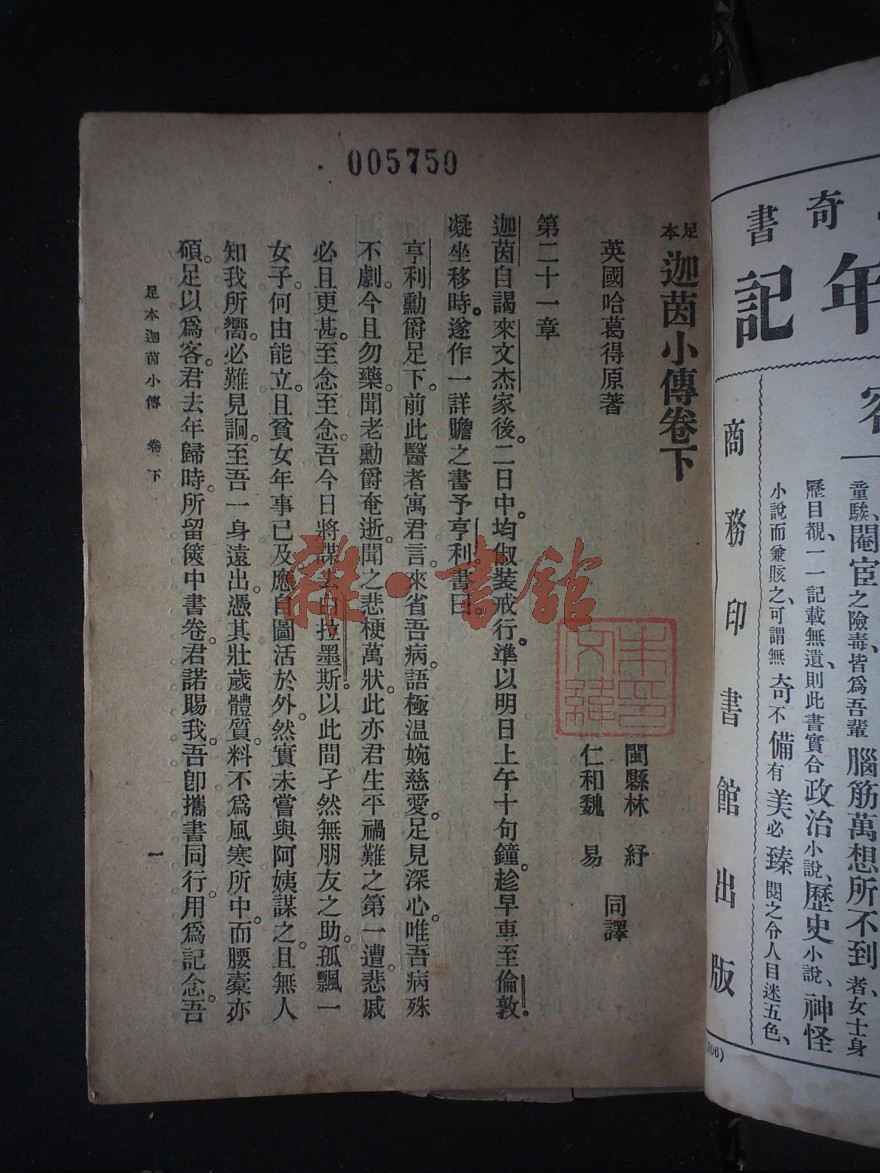 005750
足本 迦茵小傳卷下
英國哈葛得原著
閩縣林 紓
仁和魏 易
同譯
第二十一章
迦茵自謁來文杰家後。二日中。均俶裝戒行。準以明日上午十句鐘。趁早車至倫敦。
凝坐移時。遂作一詳贍之書予亨利書曰。
亨利勳爵足下。前此醫者寓君言。來省吾病。語極温婉慈愛。足見深心。唯吾病殊
不劇。今且勿藥。聞老勳爵奄逝。聞之悲梗萬狀。此亦君生平禍難之第一遭。悲戚
必且更甚。至念至念。吾今日將謀去白拉墨斯。以此間孑然無朋友之助。孤飄一
女子。何由能立。且貧女年事已及。應自圖活於外。然實未嘗與阿姨謀之。且無人
知我所嚮。必難見詗。至吾一身遠出。憑其壯歲體質。料不爲風寒所中。而腰橐亦
碩。足以爲客。君去年歸時。所留篋中書卷。君諾賜我。吾卽攜書同行。用爲記念。吾
足本迦茵小傳 卷下
一
雜·書館
奇書
年記
商務印書館出版
童騃、閹宦之險毒皆爲吾輩腦筋萬想所不到、者女士身
歷目覩、一一記載無遺則此書實合政治小說、歷史小說、神怪
小說而兼賅之、可謂無奇不備有美必臻閱之令人目迷五色、